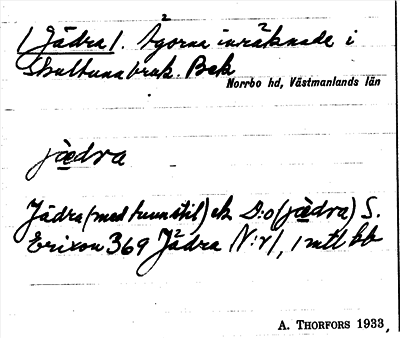 (Jädra). Ägorna inräknade i
Skultuna bruk. Bek
Norrbo hd, Västmanlands län
jædra
Jädra (med tunn stil) ek D:o (jædra) S.
Erixon 369 Jädra N:r 1, 1 mtl kb
A. THORFORS 1933,